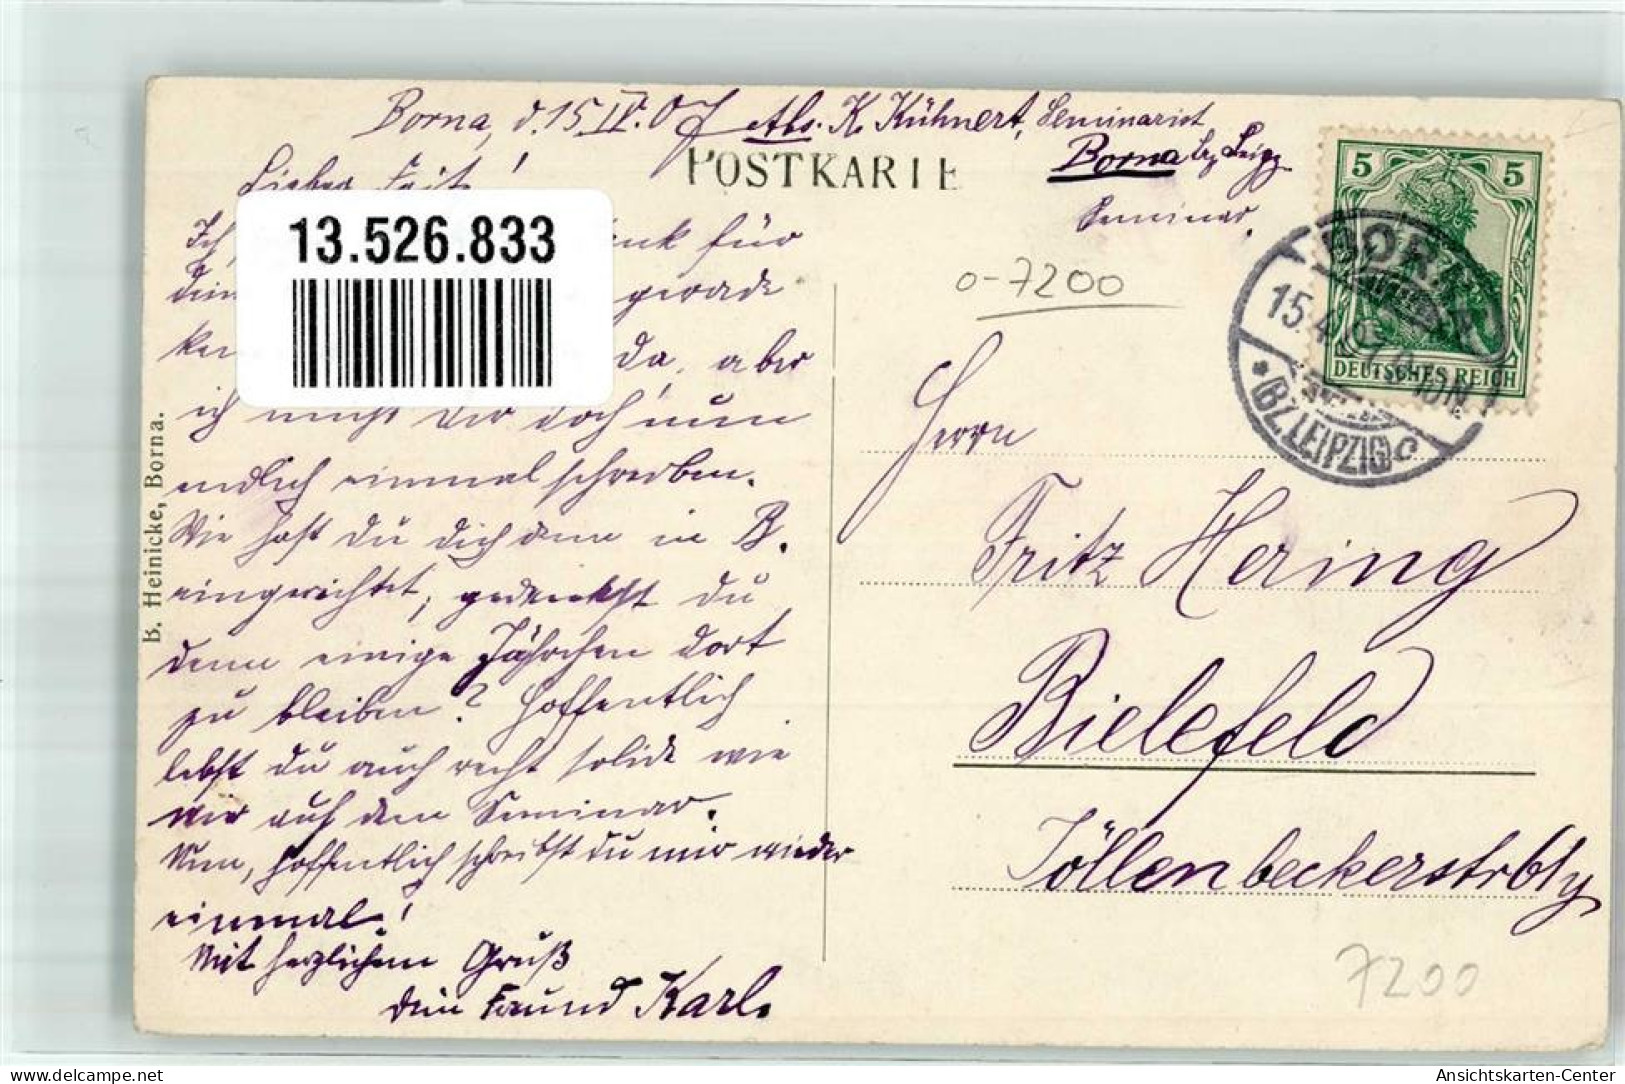 Borna, d. 15 IV. 07 Abs. K. Kühnert, Seminarist
Borna bz Leipz
Seminar.
POSTKARTE
Lieber Fritz!
13.526.833
Ich für
gerade
da, aber
ich muß dir doch nun
endlich einmal schreiben.
Wie hast du dich denn in B.
eingerichtet, gedenkst du
denn einige Jährchen dort
zu bleiben? Hoffentlich
lebst du auch recht solide wie
wir auf dem Seminar.
Nun, hoffentlich schreibst du mir wieder
einmal!
Mit herzlichem Gruß
dein Freund Karl.
B. Heinicke, Borna.
0-7200
5 5
DEUTSCHES REICH
BORNA
15.4.07
*(BZ. LEIPZIG) c
Herrn
Fritz Hering
Bielefeld
Jöllenbeckerstr
7200
delcampe.net
Ansichtskarten-Center